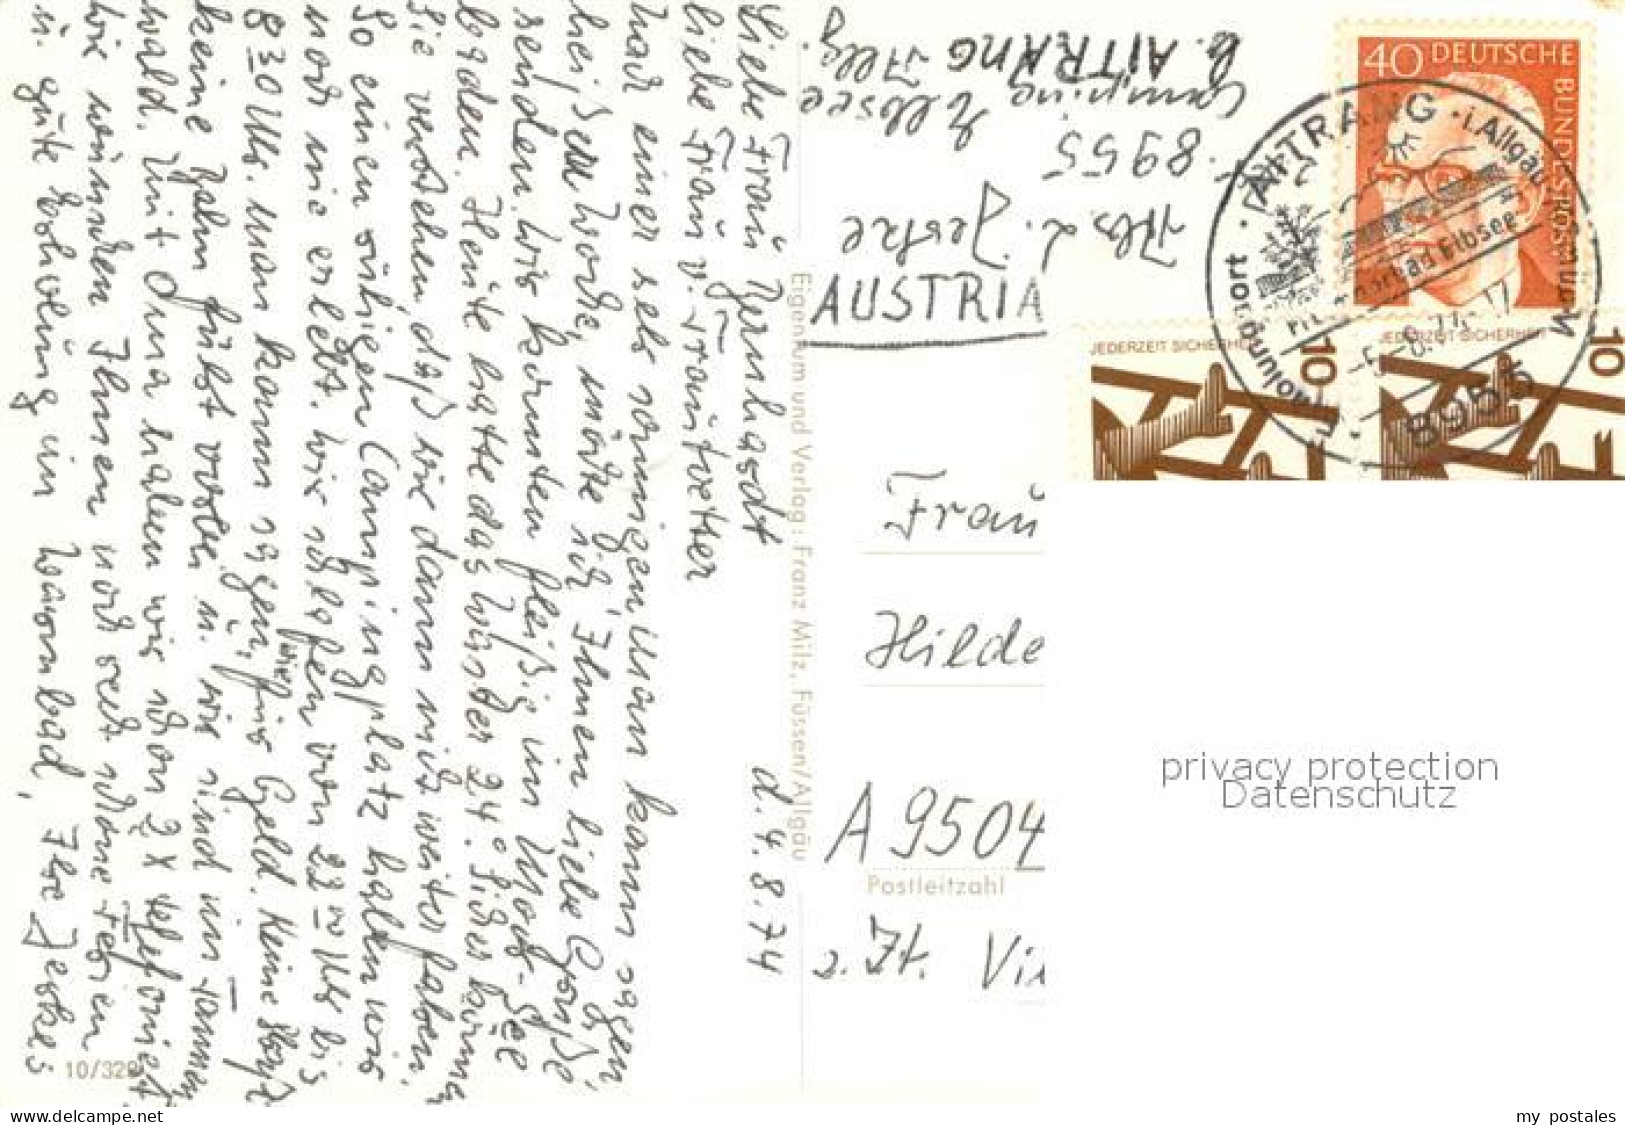 d. 4. 8. 74
Liebe Frau
liebe Frau v. Trautvetter
Nach einer sehr sonnigen man kann sagen
heißen Woche, möchte ich Ihnen liebe Grüße
senden. Wir konnten fleißig im Moor-See
baden. Heute hatte das Wasser 24°. Sicher können
Sie verstehen, daß wir dann nicht weiter fahren.
So einen ruhigen Campingplatz haben wir
noch nie erlebt. Wir schlafen von 22 00 Uhr bis
8 30 Uhr. Man kann sagen, fürs Geld. Keine
keine Bahn fährt vorbei u. wir sind im Tannen
wald. Mit Oma haben wir schon 2 x telefoniert
Wir wünschen Ihnen noch recht schöne Ferien
u. gute Erholung im Warmbad, Ihre Jeskes
10/329
Eigentum und Verlag: Franz Milz, Füssen/Allgäu
Abs. L. Jeske
8955
Camping Elbsee
b. AITRANG Allg.
AUSTRIA
Frau
Hilde
A 9504
Postleitzahl
z. Zt. Vi
40 DEUTSCHE
BUNDESPOST
JEDERZEIT SICHERHEIT
10
JEDERZEIT SICHERHEIT
10
AITRANG · i. Allgäu
Erholungsort
Elbsee
8955
privacy protection
Datenschutz
www.delcampe.net
my_postales